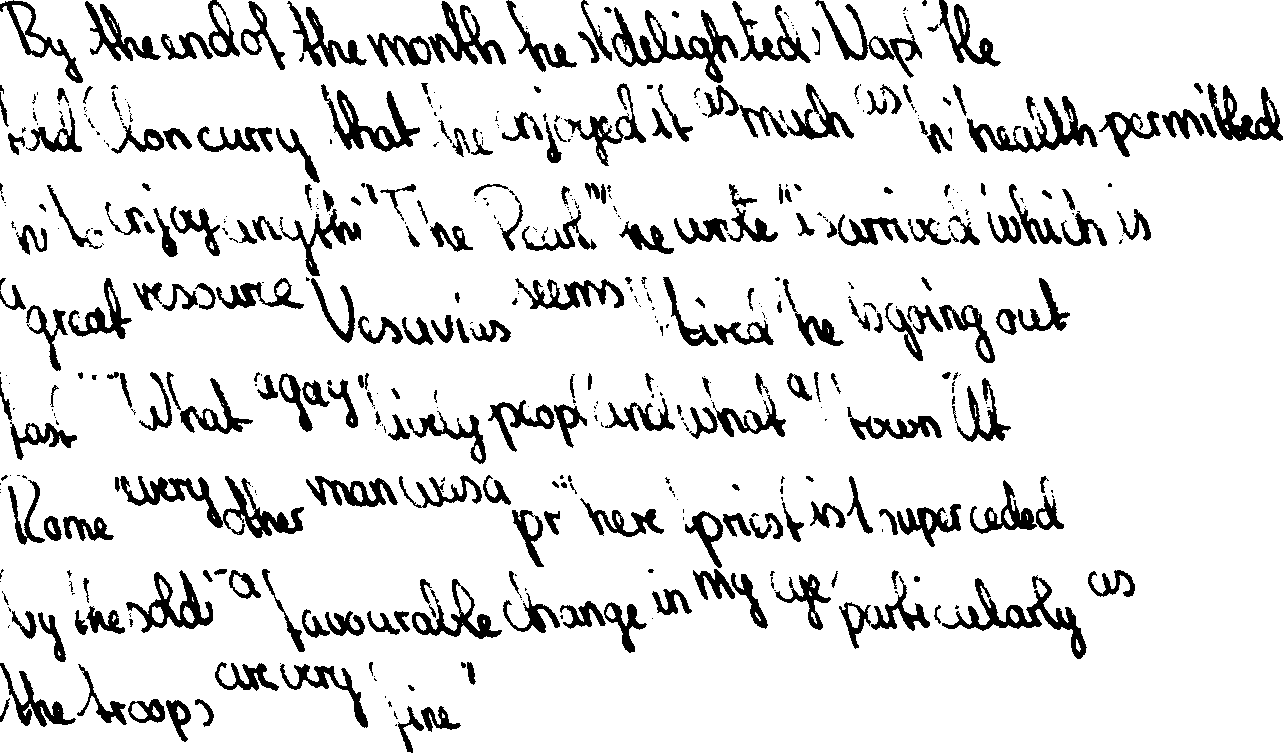 By the end of the month he delighted Nap He
told Cloncurry that he enjoyed it as much as hi health permitted
hi to enjoy anythi "The Pearl" he write "is arrived which is
a great resource Vesuvius seems tired he is going out
fast" "What a gay lively peopl and what a town At
Rome every other man was a pr here priest is superceded
by the soldi a favourable change in my eye particularly as
the troops are very fine"